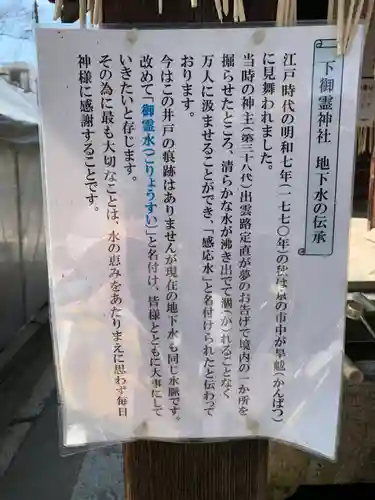 下御霊神社　地下水の伝承
江戸時代の明和七年（一七七〇年）の秋は京の市中が旱魃（かんばつ）
に見舞われました。
当時の神主（第三十八代）出雲路定直が夢のお告げで境内の一か所を
掘らせたところ、清らかな水が沸き出でて涸（か）れることなく
万人に汲ませることができ、「感応水」と名付けられたと伝わって
おります。
今はこの井戸の痕跡はありませんが現在の地下水も同じ水脈です。
改めて「御霊水（ごりょうすい）」と名付け、皆様とともに大事にして
いきたいと存じます。
その為に最も大切なことは、水の恵みをあたりまえに思わず毎日
神様に感謝することです。